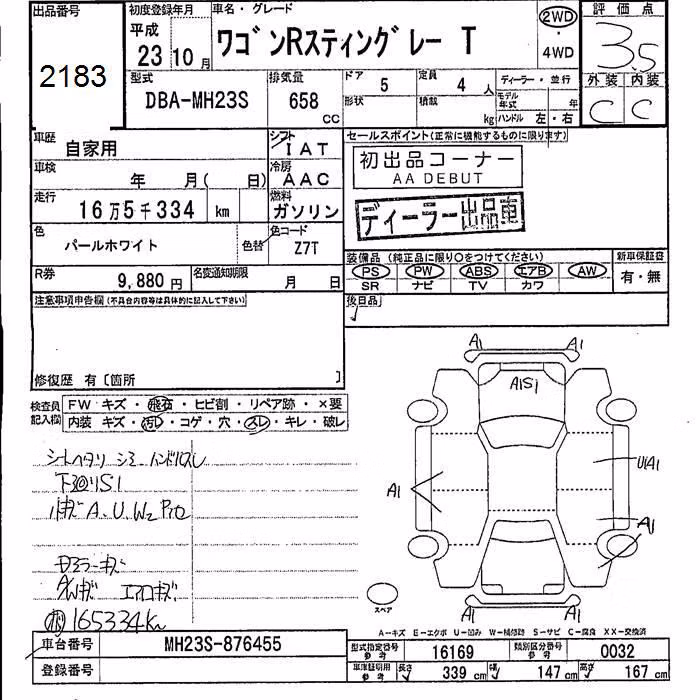 出品番号 初度登録年月 車名・グレード 2WD 評価点
2183 平成 23 10月 ワゴンRスティングレー T ・4WD 3.5
型式 排気量 ドア 定員 ディーラー・並行 外装 内装
DBA-MH23S 658 CC 5 4人 モデル年式 年 C C
形状 積載 kg ハンドル 左・右
車歴 自家用 シフト IAT セールスポイント(正常に機能するものに限ります)
車検 年 月( 日) 冷房 AAC 初出品コーナー
AA DEBUT
走行 16万5千334 km 燃料 ガソリン ディーラー出品車
色 パールホワイト 色替 色コード Z7T
装備品 (純正品に限り○をつけてください) 新車保証書
PS PW ABS エアB AW 有・無
SR ナビ TV カワ
R券 9,880円 名変通知期限 月 日
後日品
注意事項申告欄(不具合内容等は具体的に記入して下さい)
修復歴 有[箇所 ]
検査員 FW キズ・飛石・ヒビ割・リペア跡・×要
記入欄 内装 キズ・汚レ・コゲ・穴・スレ・キレ・破レ
シートヘタリ シミ ハンドルスレ
下回りS1
小キズ A.U.W2
ドアミラーキズ
AWキズ エアロキズ
165334Km
A1 A1
A1S1
U1A1
A1
A1
A1 A1
スペア
A-キズ E-エクボ U-凹み W-補修跡 S-サビ C-腐食 XX-交換済
車台番号 MH23S-876455 型式指定番号 参考 16169 類別区分番号 参考 0032
登録番号 車庫証明用 参考 長さ 339 cm 幅 147 cm 高さ 167 cm